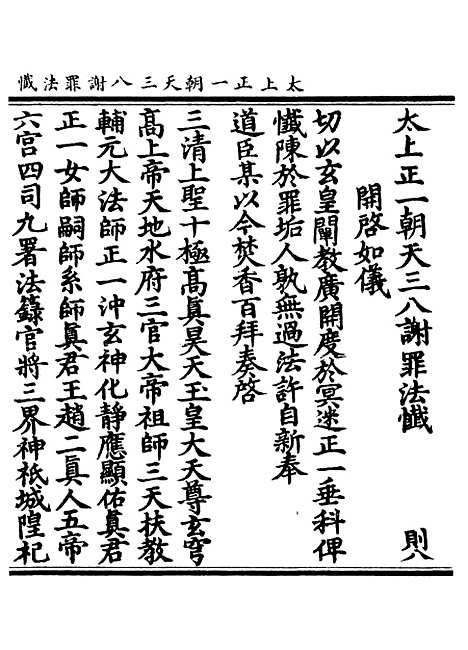 太上正一朝天三八謝罪法懺
太上正一朝天三八謝罪法懺　則八
開啓如儀
切以玄皇闡教廣開度於冥迷正一垂科俾
懺陳於罪垢人孰無過法許自新奉
道臣某以今焚香百拜奏啓
三清上聖十極高眞昊天玉皇大天尊玄穹
高上帝天地水府三官大帝祖師三天扶教
輔元大法師正一沖玄神化靜應顯佑眞君
正一女師嗣師系師眞君王趙二眞人五帝
六宫四司九署法籙官將三界神祇城隍杞